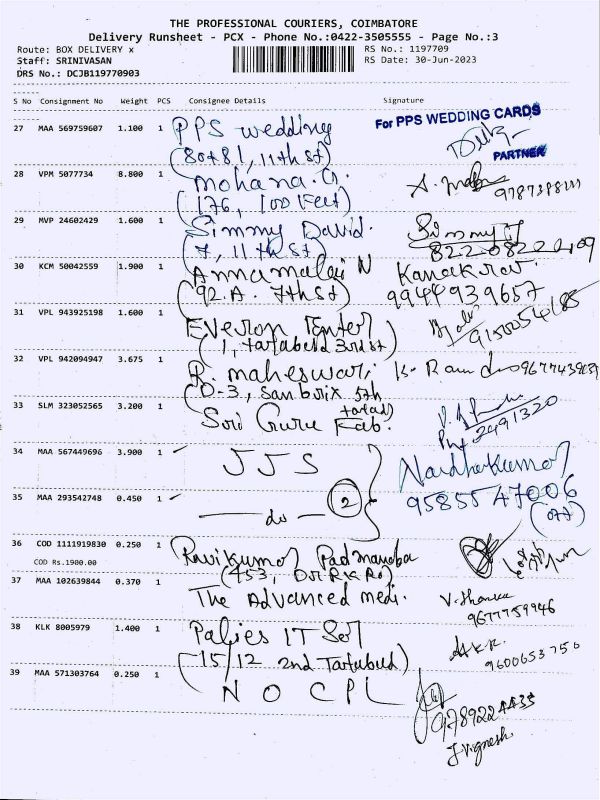 THE PROFESSIONAL COURIERS, COIMBATORE
Delivery Runsheet - PCX - Phone No.:0422-3505555 - Page No.:3
Route: BOX DELIVERY x RS No.: 1197709
Staff: SRINIVASAN RS Date: 30-Jun-2023
DRS No.: DCJB119770903
S No Consignment No Weight PCS Consignee Details Signature
For PPS WEDDING CARDS
27 MAA 569759607 1.100 1 PPS wedding
(80+81, 11th st) PARTNER
28 VPM 5077734 8.800 1 Mohana. G.
(176, 100 Feet) 
29 MVP 24602429 1.600 1 Simmy David.
(7, 11th St)
30 KCM 50042559 1.900 1 Annamalai N Kanakraj.
(92.A. 7th St) 9944939657
31 VPL 943925198 1.600 1 Everon Enter
(1, Tatabad 3rd st)
32 VPL 942094947 3.675 1 R. maheswari
D-3, San brix 5th
33 SLM 323052565 3.200 1 Sri Guru Fab. 2491320
34 MAA 567449696 3.900 1 JJS
9585547006
35 MAA 293542748 0.450 1 — do — 2
36 COD 1111919830 0.250 1 Ravikumar Padmanaba
COD Rs.1900.00 (453, Dr.RK Rd)
37 MAA 102639844 0.370 1 The Advanced medi.
9677759946
38 KLK 8005979 1.400 1 Palies IT Ser
(15/12 2nd Tatabad) 9600653750
39 MAA 571303764 0.250 1 NO CPL
9789224435
J Vignesh.